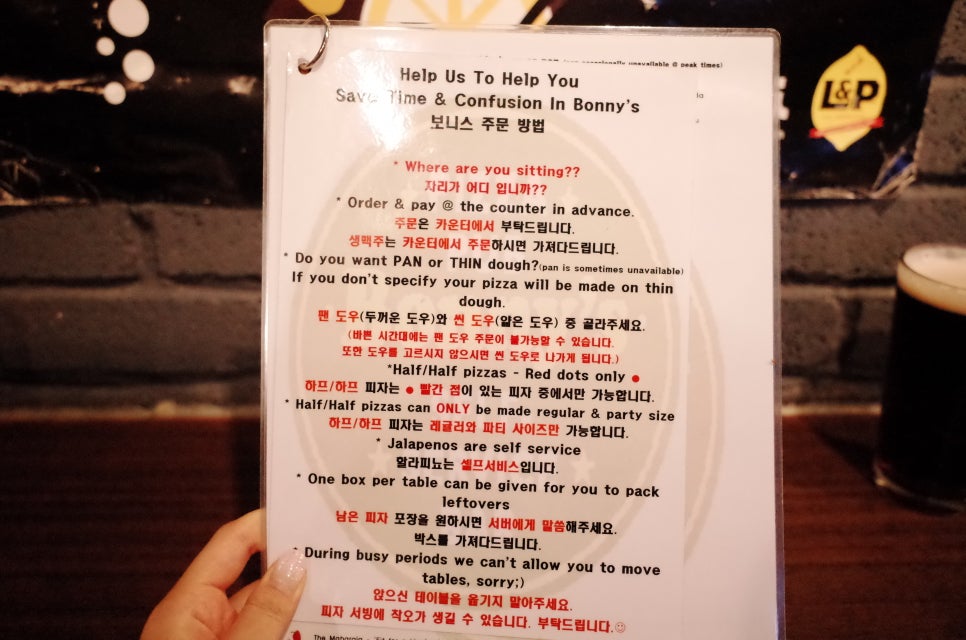 unavailable @ peak times)
Help Us To Help You
Save Time & Confusion In Bonny's
보니스 주문 방법
* Where are you sitting??
자리가 어디 입니까??
* Order & pay @ the counter in advance.
주문은 카운터에서 부탁드립니다.
생맥주는 카운터에서 주문하시면 가져다드립니다.
* Do you want PAN or THIN dough?(pan is sometimes unavailable)
If you don't specify your pizza will be made on thin
dough.
팬 도우(두꺼운 도우)와 씬 도우(얇은 도우) 중 골라주세요.
(바쁜 시간대에는 팬 도우 주문이 불가능할 수 있습니다.
또한 도우를 고르시지 않으시면 씬 도우로 나가게 됩니다.)
*Half/Half pizzas - Red dots only ●
하프/하프 피자는 ● 빨간 점이 있는 피자 중에서만 가능합니다.
* Half/Half pizzas can ONLY be made regular & party size
하프/하프 피자는 레귤러와 파티 사이즈만 가능합니다.
* Jalapenos are self service
할라피뇨는 셀프서비스입니다.
* One box per table can be given for you to pack
leftovers
남은 피자 포장을 원하시면 서버에게 말씀해주세요.
박스를 가져다드립니다.
* During busy periods we can't allow you to move
tables, sorry;)
앉으신 테이블을 옮기지 말아주세요.
피자 서빙에 착오가 생길 수 있습니다. 부탁드립니다.☺
The Maharaja
L&P